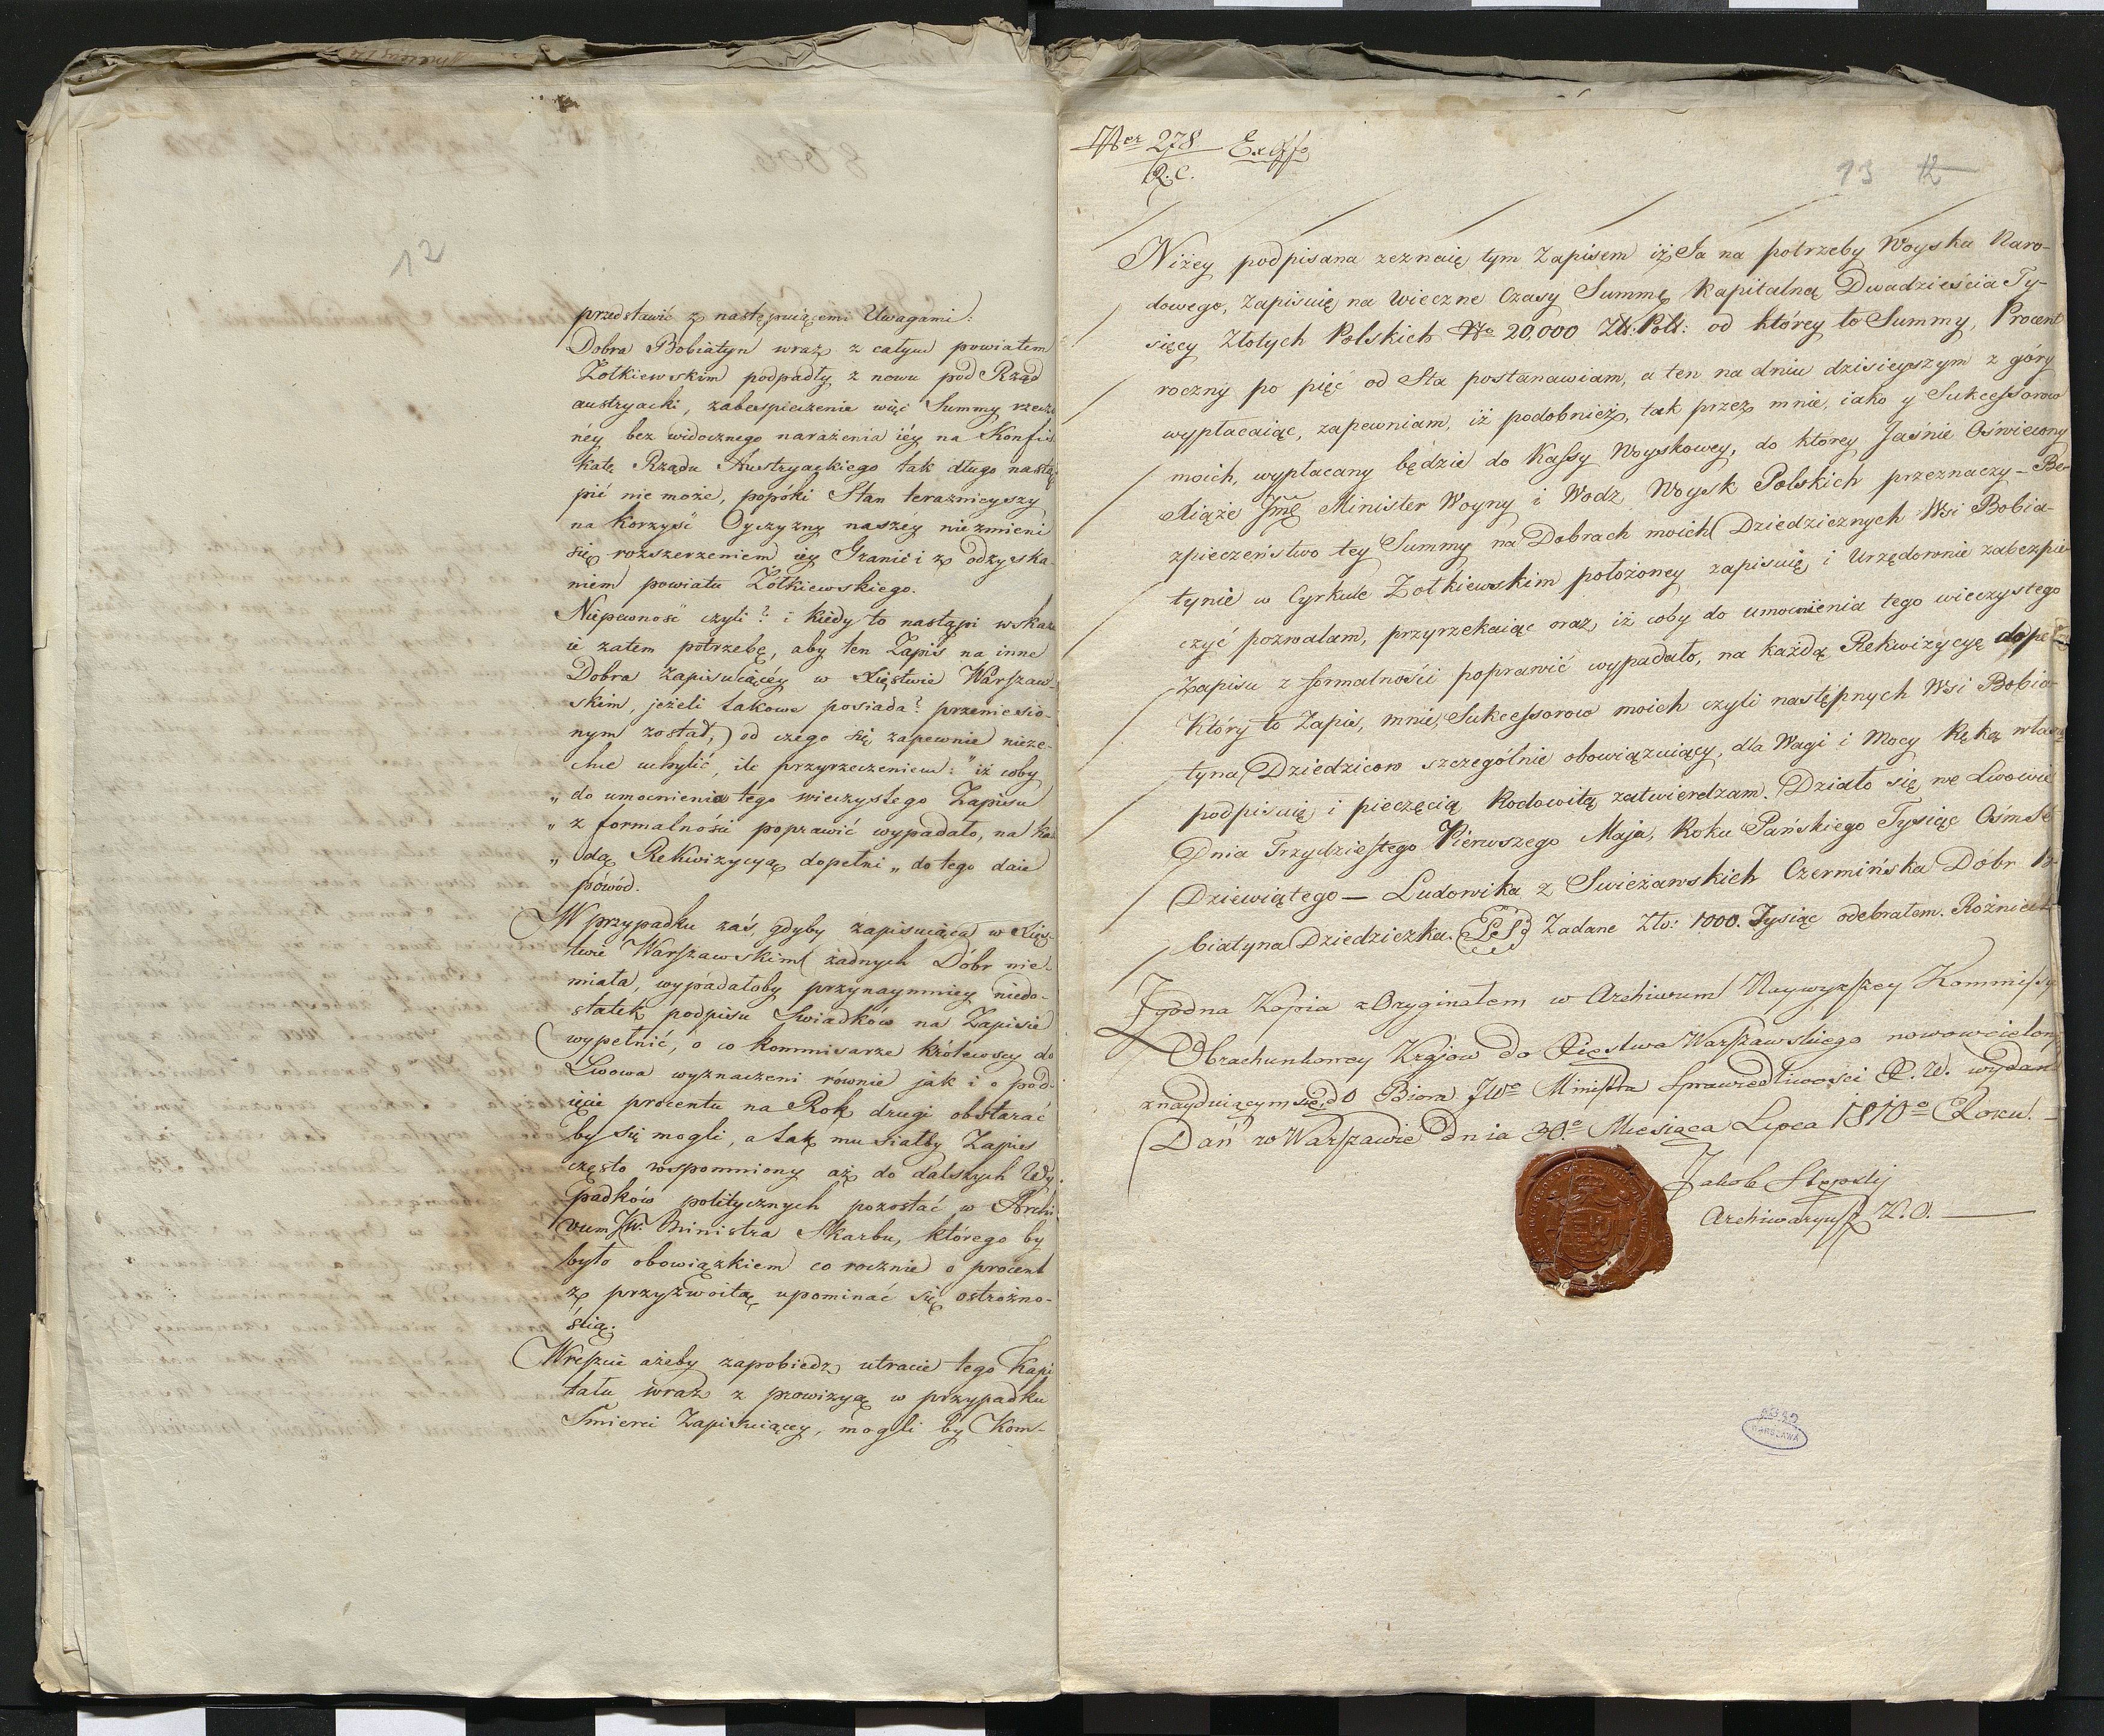 12
przedstawić z następuiącemi Uwagami:
Dobra Bobiatyn wraz z całym powiatem
Żółkiewskim podpadły z nowu pod Rząd
austryacki, zabespieczenie więc Summy rzeczo
néy bez widocznego narażenia iéy na Konfis
katę Rządu Austryackiego tak długo nastą
pić nie może, popóki Stan teraznieyszy
na korzyść Oyczyzny naszéy niezmieni
się rozszerzeniem iey Granic i z odzyska-
niem powiatu Żółkiewskiego.
Niepewność czyli? i kiedy to nastąpi wskazu
ie zatem potrzebę, aby ten Zapis na inne
Dobra Zapisuiącéy w Xięstwie Warszaw-
skim, jeżeli takowe posiada? przeniesio-
nym został, od czego się zapewnie nieze-
chce uchylić, ile przyrzeczeniem: "iż coby
„ do umocnienia tego wieczystego Zapisu
„ z formalności poprawić wypadało, na każ
„ dą Rekwizycyą dopełni „ do tego daie
powód.
W przypadku zaś, gdyby zapisuiąca w Xięs-
twie Warszawskim żadnych Dóbr nie-
miała, wypadałoby przynaymniey niedo-
statek podpisu Swiadków na Zapisie
wypełnić, o co Kommisarze królewscy do
Lwowa wyznaczeni równie jak i o pod-
ięcie procentu na Rok drugi obstarać
by się mogli, a tak musiałby Zapis
często wspomniony aż do dalszych Wy-
padków politycznych pozostać w Archi-
vum JW. Ministra Skarbu, którego by
było obowiązkiem co rocznie o procent
z przyzwoitą upominać się ostrożno-
ścią.
Wreszcie ażeby zapobiedz utracie tego Kapi
tału wraz z prowizyą w przypadku
Smierci Zapisuiącey, mogli by Kom-
Ner 278 Ex Offo
R. C.
13 12
Niżey podpisana zeznaię tym Zapisem iż Ja na potrzeby Woyska Naro-
dowego, zapisuię na wieczne Czasy Summę Kapitalną Dwadzieścia Ty-
sięcy Złotych Polskich No 20,000 Zł: Pol: od którey to Summy, Procent
roczny po pięć od Sta postanawiam, a ten na dniu dzisieyszym z góry
wypłacaiąc, zapewniam, iż podobnież, tak przez mnie, iako y Sukcessorow
moich, wypłacany będzie do Kassy Woyskowey, do którey Jaśnie Oświecony
Xiąże Jmć Minister Woyny i Wodz Woysk Polskich przeznaczy - Be-
zpieczeństwo tey Summy na Dobrach moich Dziedzicznych Wsi Bobia-
tynie w Cyrkule Zołkiewskim położoney zapisuię i Urzędownie zabezpie
czyć pozwalam, przyrzekaiąc oraz, iż coby do umocnienia tego wieczystego
Zapisu z formalności poprawić wypadało, na każdą Rekwizycyę dopeł
Który to Zapis, mnie, Sukcessorow moich czyli następnych Wsi Bobia-
tyna Dziedzicow szczególnie obowiązuiący, dla Wagi i Mocy Ręką własną
podpisuię i pieczęcią Rodowitą zatwierdzam. Działo się we Lwowie
Dnia Trzydziestego Pierwszego Maja, Roku Pańskiego Tysiąc Ośmset
Dziewiątego — Ludowika z Swieżawskich Czermińska Dobr Bo-
biatyna Dziedziczka. (L. S.) Zadane Zło: 1000. Tysiąc odebrałem. Rożniecki
Zgodna Kopia z Oryginałem w Archiwum Naywyższey Kommissyi
Obrachunkowey Kraiow do Xięstwa Warszawskiego nowowcielonych
znayduiącym się, do Biora JWo Ministra Sprawiedliwości X. W. wydana
Dań w Warszawie dnia 30.o Miesiąca Lipca 1810o Roku. -
Jakob
Archiwaryusz K. O.
AGAD
WARSZAWA